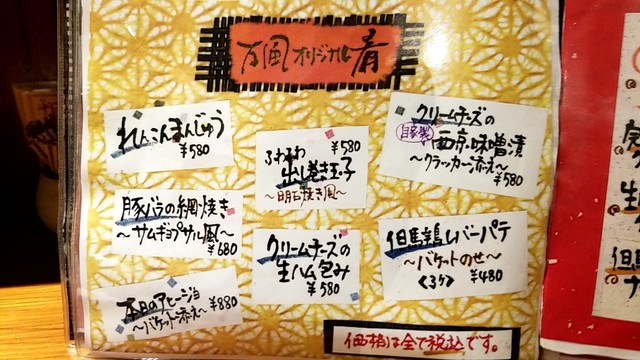 万風オリジナル肴
れんこんまんじゅう
¥580
豚バラの網焼き
〜サムギョプサル風〜
¥680
本日のアヒージョ
〜バケット添え〜 ¥880
ふわふわ ¥580
出し巻き玉子
〜明石焼き風〜
クリームチーズの
生ハム包み
¥580
クリームチーズの
自家製 西京味噌漬
〜クラッカー添え〜
¥580
但馬鶏レバーパテ
〜バケットのせ〜
<3ケ> ¥480
価格は全て税込です。